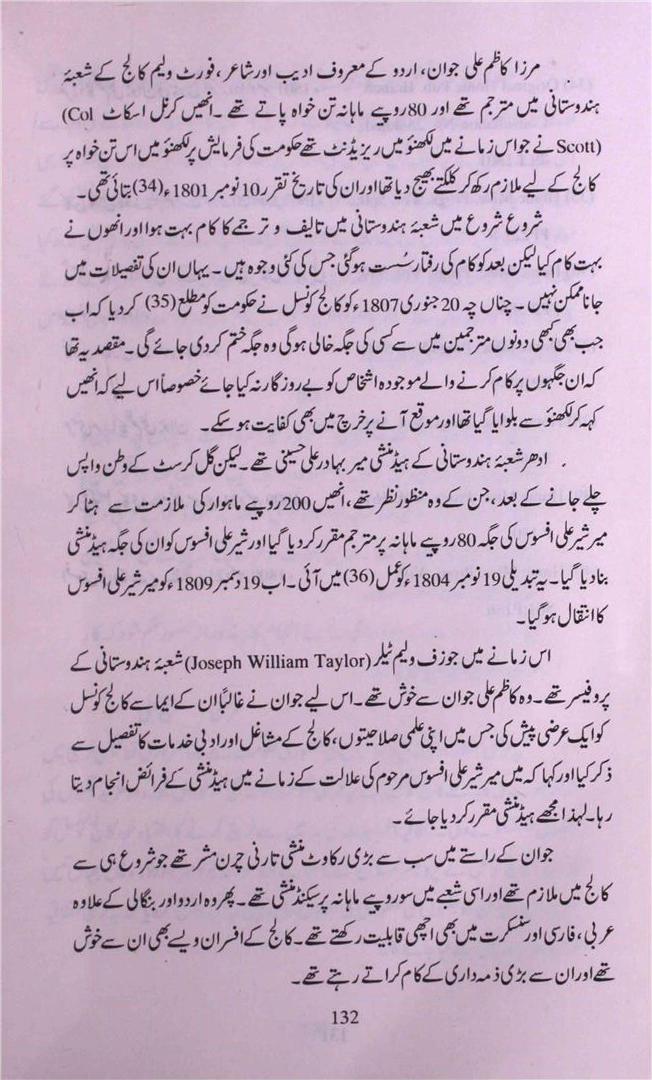 مرزا کاظم علی جوان، اردو کے معروف ادیب اور شاعر، فورٹ ولیم کالج کے شعبۂ
ہندوستانی میں مترجم تھے اور 80 روپے ماہانہ تن خواہ پاتے تھے۔ انھیں کرنل اسکاٹ (Col
Scott) نے جو اس زمانے میں لکھنؤ میں ریزیڈنٹ تھے حکومت کی فرمایش پر لکھنؤ میں اس تن خواہ پر
کالج کے لیے ملازم رکھ کر کلکتے بھیج دیا تھا اور ان کی تاریخ تقرر 10 نومبر 1801ء (34) بتائی تھی۔
شروع شروع میں شعبۂ ہندوستانی میں تالیف و ترجمے کا کام بہت ہوا اور انھوں نے
بہت کام کیا لیکن بعد کو کام کی رفتار سُست ہوگئی جس کی کئی وجوہ ہیں۔ یہاں ان کی تفصیلات میں
جانا ممکن نہیں۔ چناں چہ 20 جنوری 1807ء کو کالج کونسل نے حکومت کو مطلع (35) کردیا کہ اب
جب بھی کبھی دونوں مترجمین میں سے کسی کی جگہ خالی ہوگی وہ جگہ ختم کردی جائے گی۔ مقصد یہ تھا
کہ ان جگہوں پر کام کرنے والے موجودہ اشخاص کو بے روزگار نہ کیا جائے خصوصاً اس لیے کہ انھیں
کہہ کر لکھنؤ سے بلوایا گیا تھا اور موقع آنے پر خرچ میں بھی کفایت ہو سکے۔
ادھر شعبۂ ہندوستانی کے ہیڈ منشی میر بہادر علی حسینی تھے۔ لیکن گل کرسٹ کے وطن واپس
چلے جانے کے بعد، جن کے وہ منظورِ نظر تھے، انھیں 200 روپے ماہوار کی ملازمت سے ہٹا کر
میر شیر علی افسوس کی جگہ 80 روپے ماہانہ پر مترجم مقرر کردیا گیا اور شیر علی افسوس کو ان کی جگہ ہیڈ منشی
بنا دیا گیا۔ یہ تبدیلی 19 نومبر 1804ء کو عمل (36) میں آئی۔ اب 19 دسمبر 1809ء کو میر شیر علی افسوس
کا انتقال ہوگیا۔
اس زمانے میں جوزف ولیم ٹیلر (Joseph William Taylor) شعبۂ ہندوستانی کے
پروفیسر تھے۔ وہ کاظم علی جوان سے خوش تھے۔ اس لیے جوان نے غالباً ان کے ایما سے کالج کونسل
کو ایک عرضی پیش کی جس میں اپنی علمی صلاحیتوں، کالج کے مشاغل اور ادبی خدمات کا تفصیل سے
ذکر کیا اور کہا کہ میں میر شیر علی افسوس مرحوم کی علالت کے زمانے میں ہیڈ منشی کے فرائض انجام دیتا
رہا۔ لہٰذا مجھے ہیڈ منشی مقرر کردیا جائے۔
جوان کے راستے میں سب سے بڑی رکاوٹ منشی تارنی چرن مشر تھے جو شروع ہی سے
کالج میں ملازم تھے اور اسی شعبے میں سو روپے ماہانہ پر سیکنڈ منشی تھے۔ پھر وہ اردو اور بنگالی کے علاوہ
عربی، فارسی اور سنسکرت میں بھی اچھی قابلیت رکھتے تھے۔ کالج کے افسران ویسے بھی ان سے خوش
تھے اور ان سے بڑی ذمہ داری کے کام کراتے رہتے تھے۔
132